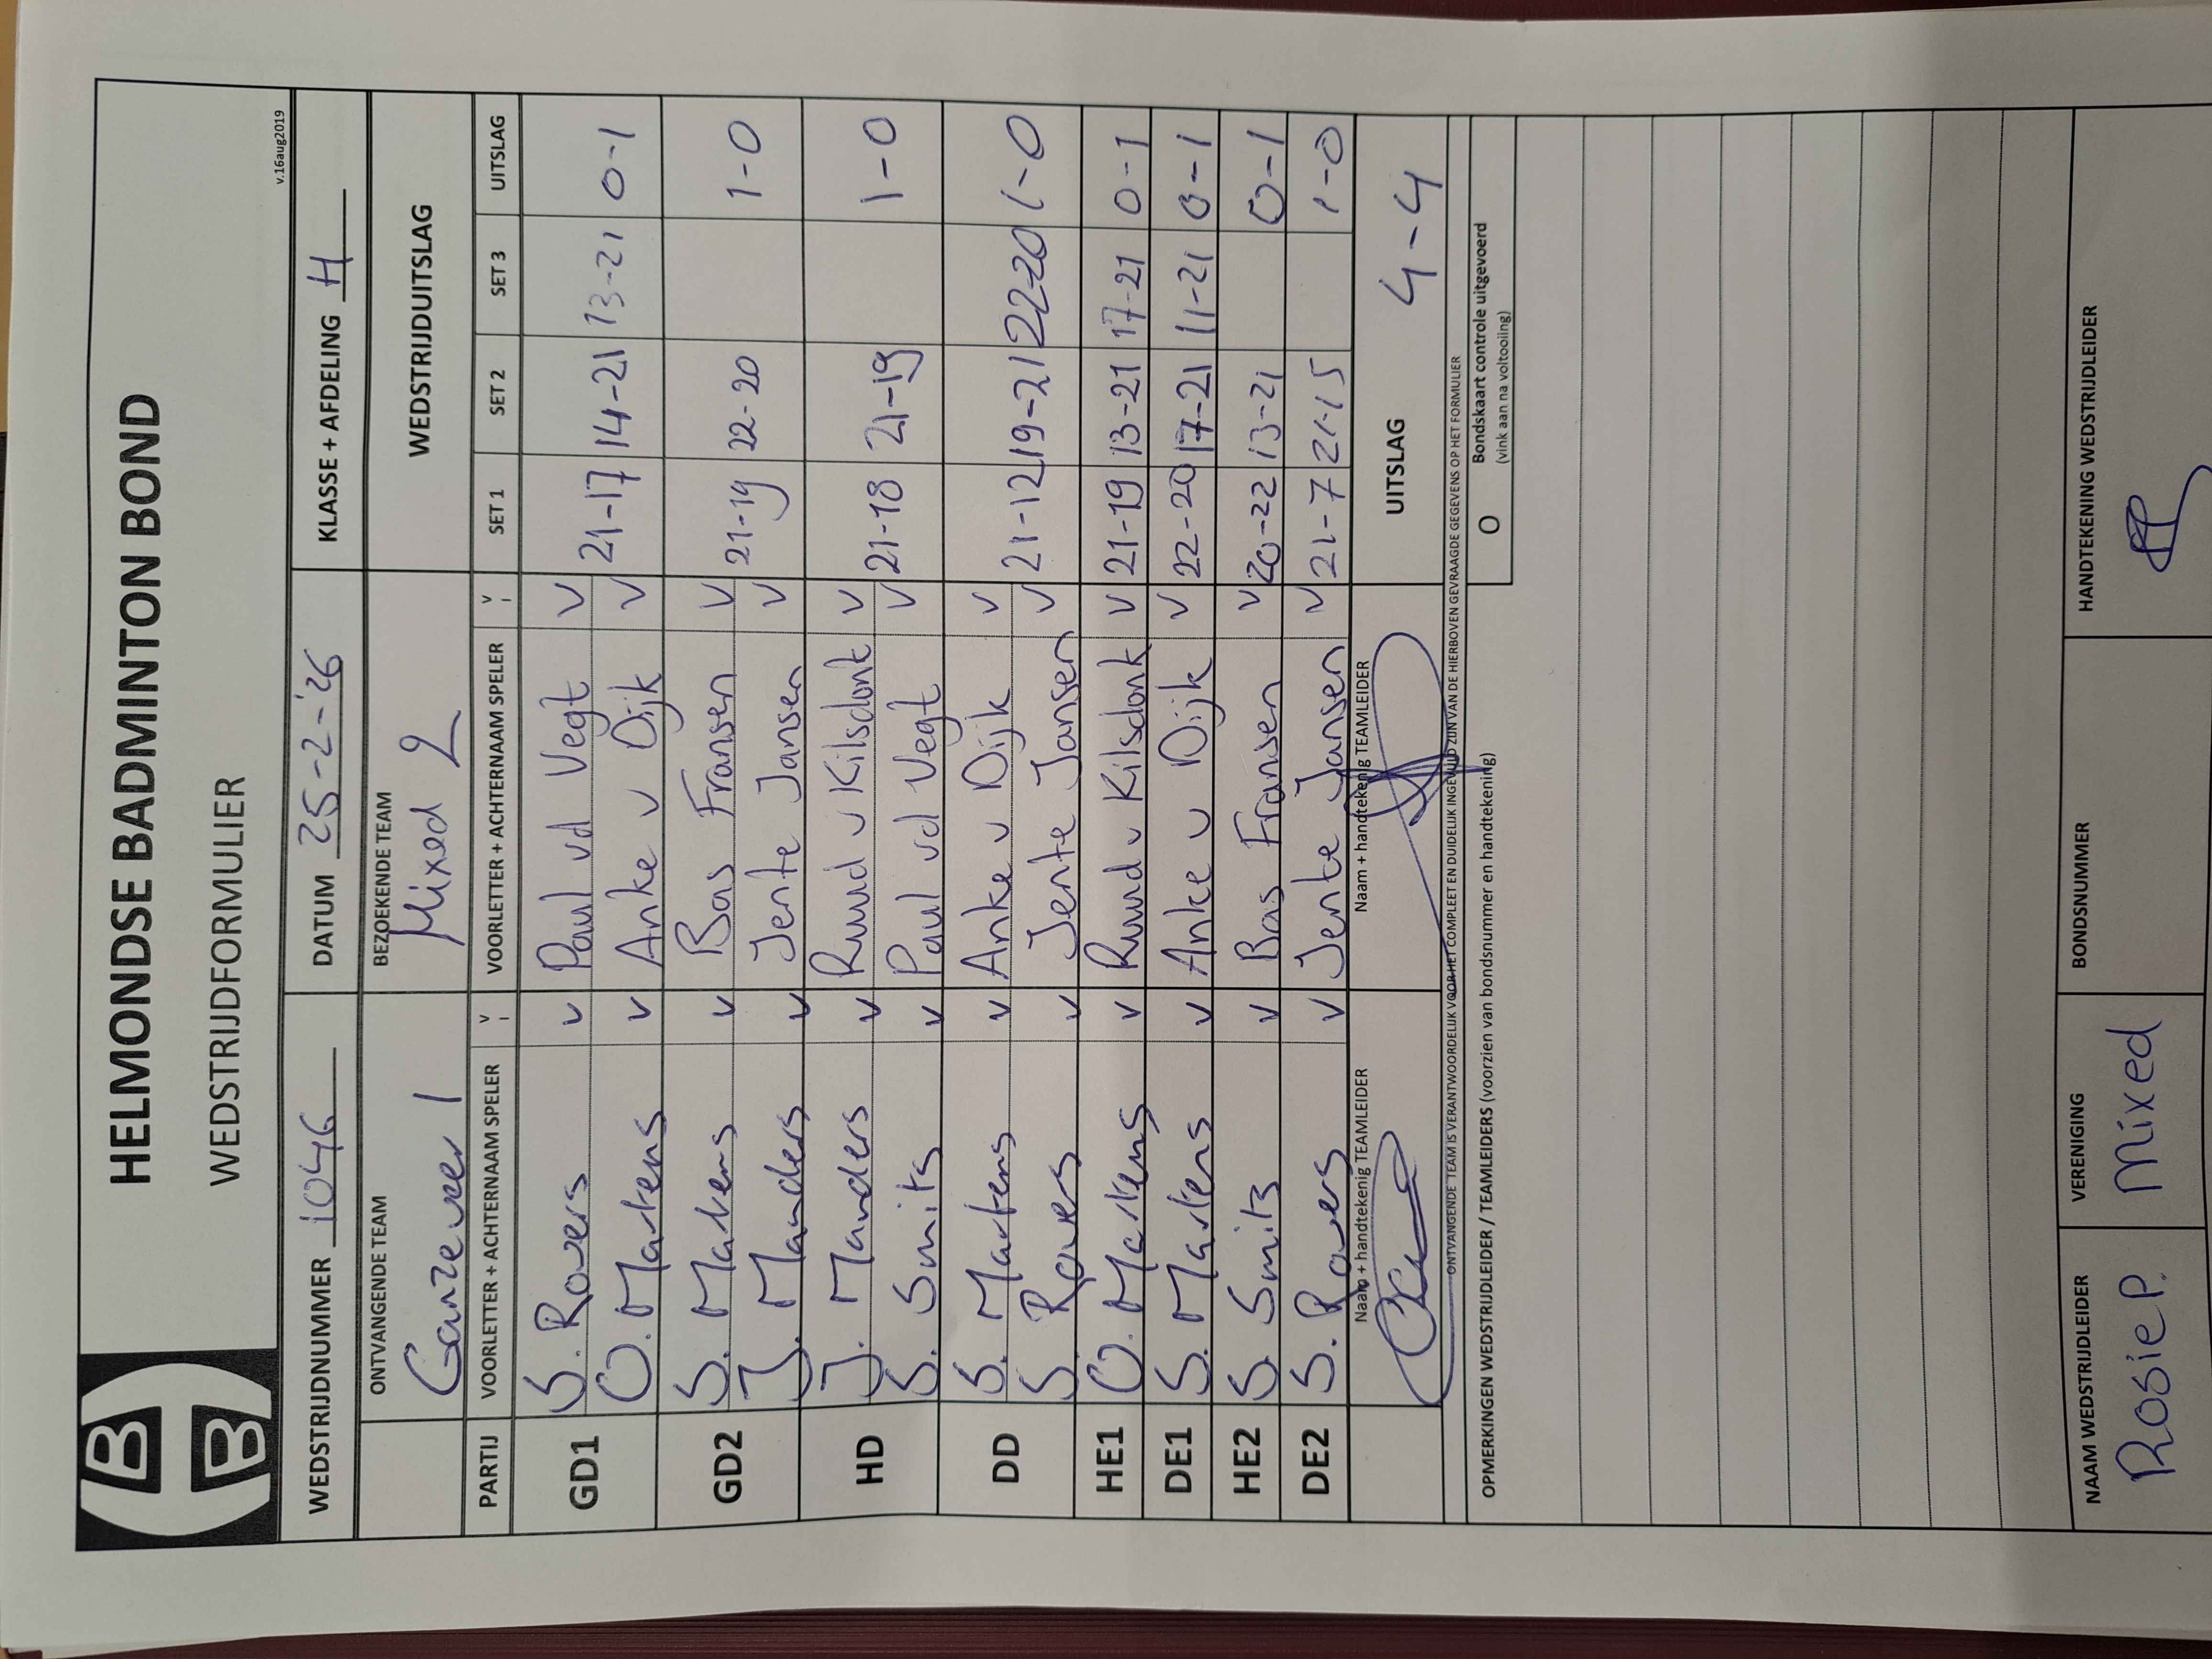 BB
HELMONDSE BADMINTON BOND
WEDSTRIJDFORMULIER
v.16aug2019
WEDSTRIJDNUMMER 1046 DATUM 25-2-'26 KLASSE + AFDELING H
ONTVANGENDE TEAM BEZOEKENDE TEAM WEDSTRIJDUITSLAG
Ganzeveer 1 Mixed 2
PARTIJ VOORLETTER + ACHTERNAAM SPELER V VOORLETTER + ACHTERNAAM SPELER V SET 1 SET 2 SET 3 UITSLAG
GD1 S. Rovers v Paul vd Vegt v
O. Martens v Anke v Dijk v 21-17 14-21 13-21 0-1
GD2 S. Martens v Bas Fransen v
J. Manders v Jente Jansen v 21-19 22-20 1-0
HD J. Manders v Ruud v Kilsdonk v
S. Smits v Paul vd Vegt v 21-18 21-19 1-0
DD S. Martens v Anke v Dijk v
S. Rovers v Jente Jansen v 21-12 19-21 22-20 1-0
HE1 O. Martens v Ruud v Kilsdonk v 21-19 13-21 17-21 0-1
DE1 S. Martens v Anke v Dijk v 22-20 17-21 11-21 0-1
HE2 S. Smits v Bas Fransen v 20-22 13-21 0-1
DE2 S. Rovers v Jente Jansen v 21-7 21-15 1-0
Naam + handtekenig TEAMLEIDER Naam + handtekenig TEAMLEIDER UITSLAG 4-4
ONTVANGENDE TEAM IS VERANTWOORDELIJK VOOR HET COMPLEET EN DUIDELIJK INGEVULD ZIJN VAN DE HIERBOVEN GEVRAAGDE GEGEVENS OP HET FORMULIER
OPMERKINGEN WEDSTRIJDLEIDER / TEAMLEIDERS (voorzien van bondsnummer en handtekening) O Bondskaart controle uitgevoerd
(vink aan na voltooiing)
NAAM WEDSTRIJDLEIDER VERENIGING BONDSNUMMER HANDTEKENING WEDSTRIJDLEIDER
Rosie P. Mixed